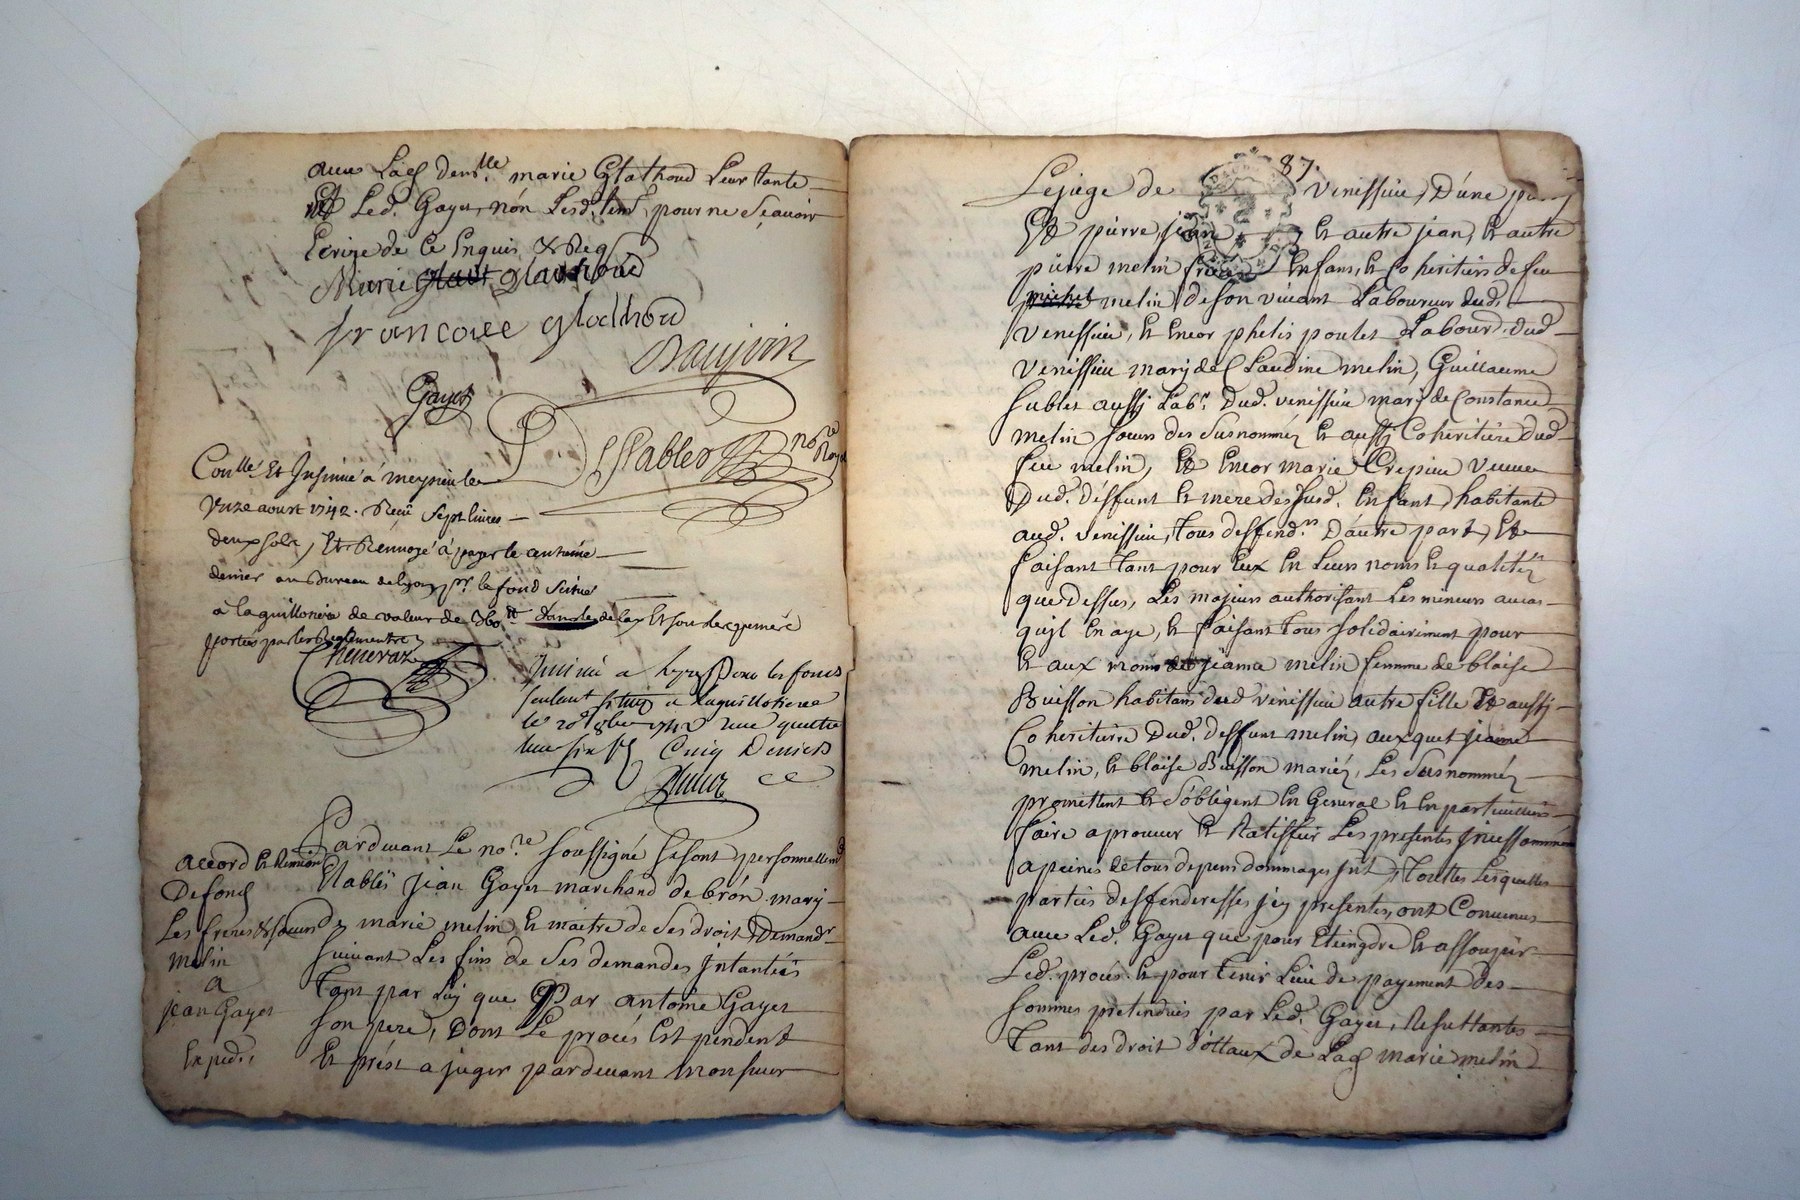 avec Lad. dem.lle marie Glathoud Leur tante
Et Led. Gayet, nón Lesd. pour ne Sçavoir
Ecrire de Ce Enquis &
Marie glathoud
francoise glathoud
Daujoin
Gayet
DesSables no.re Roy.
Con.lle Et Insinué á meysieu le
Unze aoust 1742. Receu Sept livres
deux sols, Et Renvoyé á payer le centiéme
denier au Bureau de lyon pr. le fond Situé
a la guillotiere de valeur de 360 tt dans le delay Et sous les peines
portées par les Reglements
Cheneraz
Insinué a Lyon Pour les fonds
seulement situés a la guillotiere
le 20e 8bre 1742 reçu quatre
livres six s. Cinq Deniers
accord Et Remission
De fond
Les freres & soeurs
melin
a
jean Gayet
Exped.
Pardevant Le no.re soussigné se sont personnellem.t
Etablis jean Gayet marchand de brón mary
de marie melin, Et maitre de Ses droits, Demand.r
suivant Les fins de Ses demandes Intantées
Tant par Luy que Par antoine Gayet
son pere, Dont Le procés Est pendent
Et prést a juger pardevant monsieur
87.
Lejuge de venissieu, D'une part
Et pierre, jean Et autre jean, Et autre
pierre melin freres Enfans, Et Coheritiers de feu
michel melin de son vivant Laboureur dud.
venissieu, Et Encor phelis poulet Labour. dud.
venissieu mary de Claudine melin, Guillaume
sublet aussy Lab.r Dud. venissieu mary de Constance
melin soeurs des Susnommés Et aussy Coheritiere Dud.
feu melin, Et Encor marie Crepieu veuve
Dud. déffunt Et mere des susd. Enfants, habitante
aud. venissieu, tous deffend.rs D'autre part, Et
faisant Tant pour Eux En Leurs noms Et qualités
que Dessus, Les majeurs authorisant Les mineurs au cas
qu'jl En aye, Et faisant tous solidairement pour
Et aux noms de jeanne melin femme de blaise
Buisson habitans dud. venissieu autre fille Et aussy
Coheritiere Dud. deffunt melin, auxquels jeanne
melin, Et blaise Buisson mariés, Les Susnommés
promettent Et S'obligent En General Et En particulier
faire aprouver Et Ratiffier Les presentes Incessamment
a peines de tous depens dommages Int. Toutes Lesquelles
parties deffenderesses jcy presentes, ont Convenus
avec Led. Gayet que pour Eteingdre Et assoupir
Led. procés. Et pour tenir Lieu de payement des
sommes pretenduës par Led. Gayet, Resultantes
Tant des droit d'ottaux de Lad. marie melin